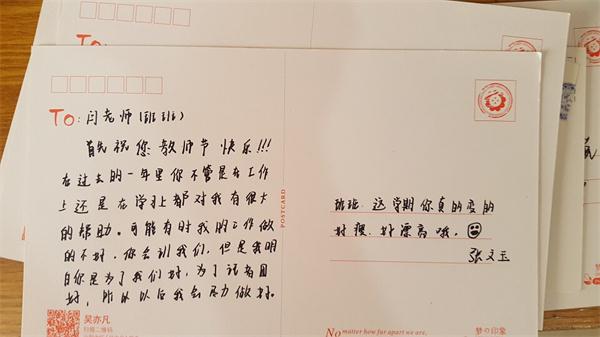 To:
To: 闫老师(班班)
首先祝您教师节快乐!!!
在过去的一年里你不管是在工作
上还是在学习上都对我有很大
的帮助。可能有时我的工作做
的不好,你会训我们,但是我明
白你是为了我们好,为了
好,所以以后我会尽力做好。
班班:这学期你真的变的
好瘦,好漂亮哦。
张文玉
POSTCARD
吴亦凡
扫描二维码
No matter how far apart we are,
梦の印象